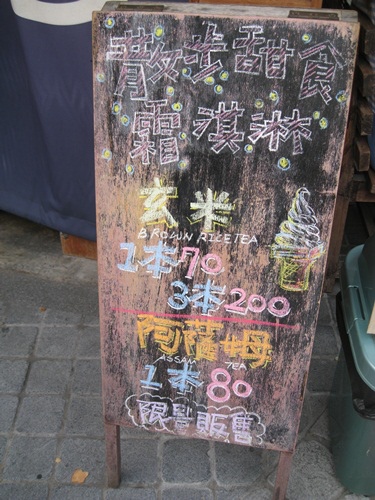 散步甜食
霜淇淋
玄米
BROWN RICE TEA
1本70
3本200
阿薩姆
ASSAM TEA
1本80
限量販售